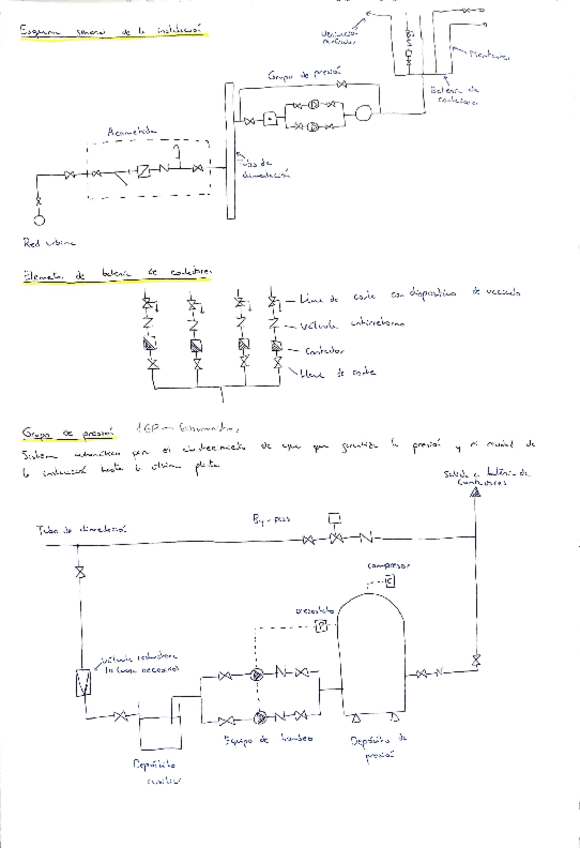 Esquema general de la instalación
Ventilación
Montantes
Grupo de presión
Batería de
contadores
Acometida
Tubo de
alimentación
Red urbana
Elementos de batería de contadores
Llave de corte con dispositivo de vaciado
Válvula antirretorno
Contador
Llave de corte
Grupo de presión
Sistema automático para el abastecimiento de agua que garantiza la presión y el caudal de
la instalación hasta la última planta
Salida a batería de
contadores
Tubo de alimentación
By-pass
compresor
C
presostato
P
Válvula reductora
(si fuese necesario)
Equipo de bombeo
Depósito de
presión
Depósito
auxiliar